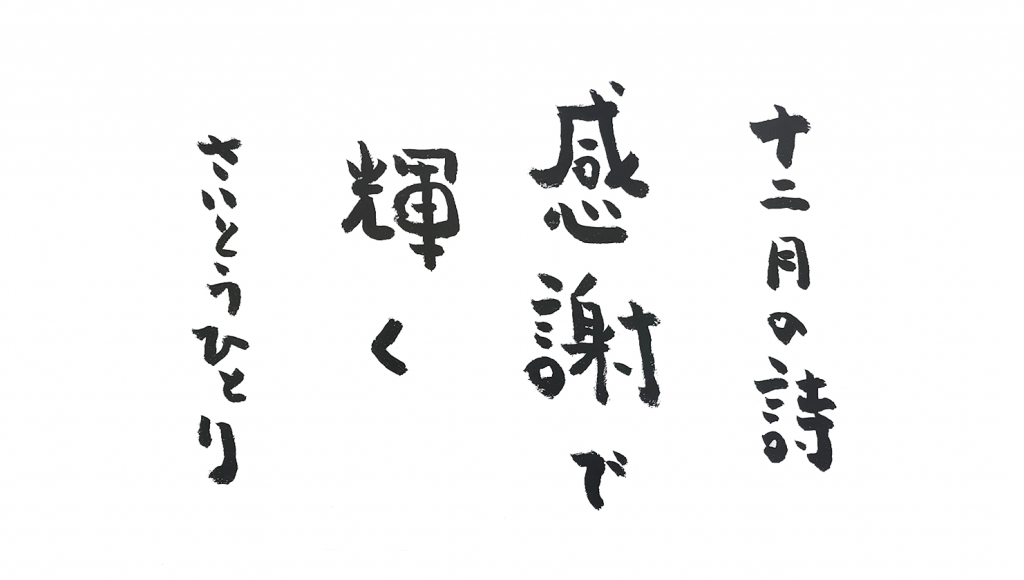 十二月の詩
感謝で
輝く
さいとうひとり